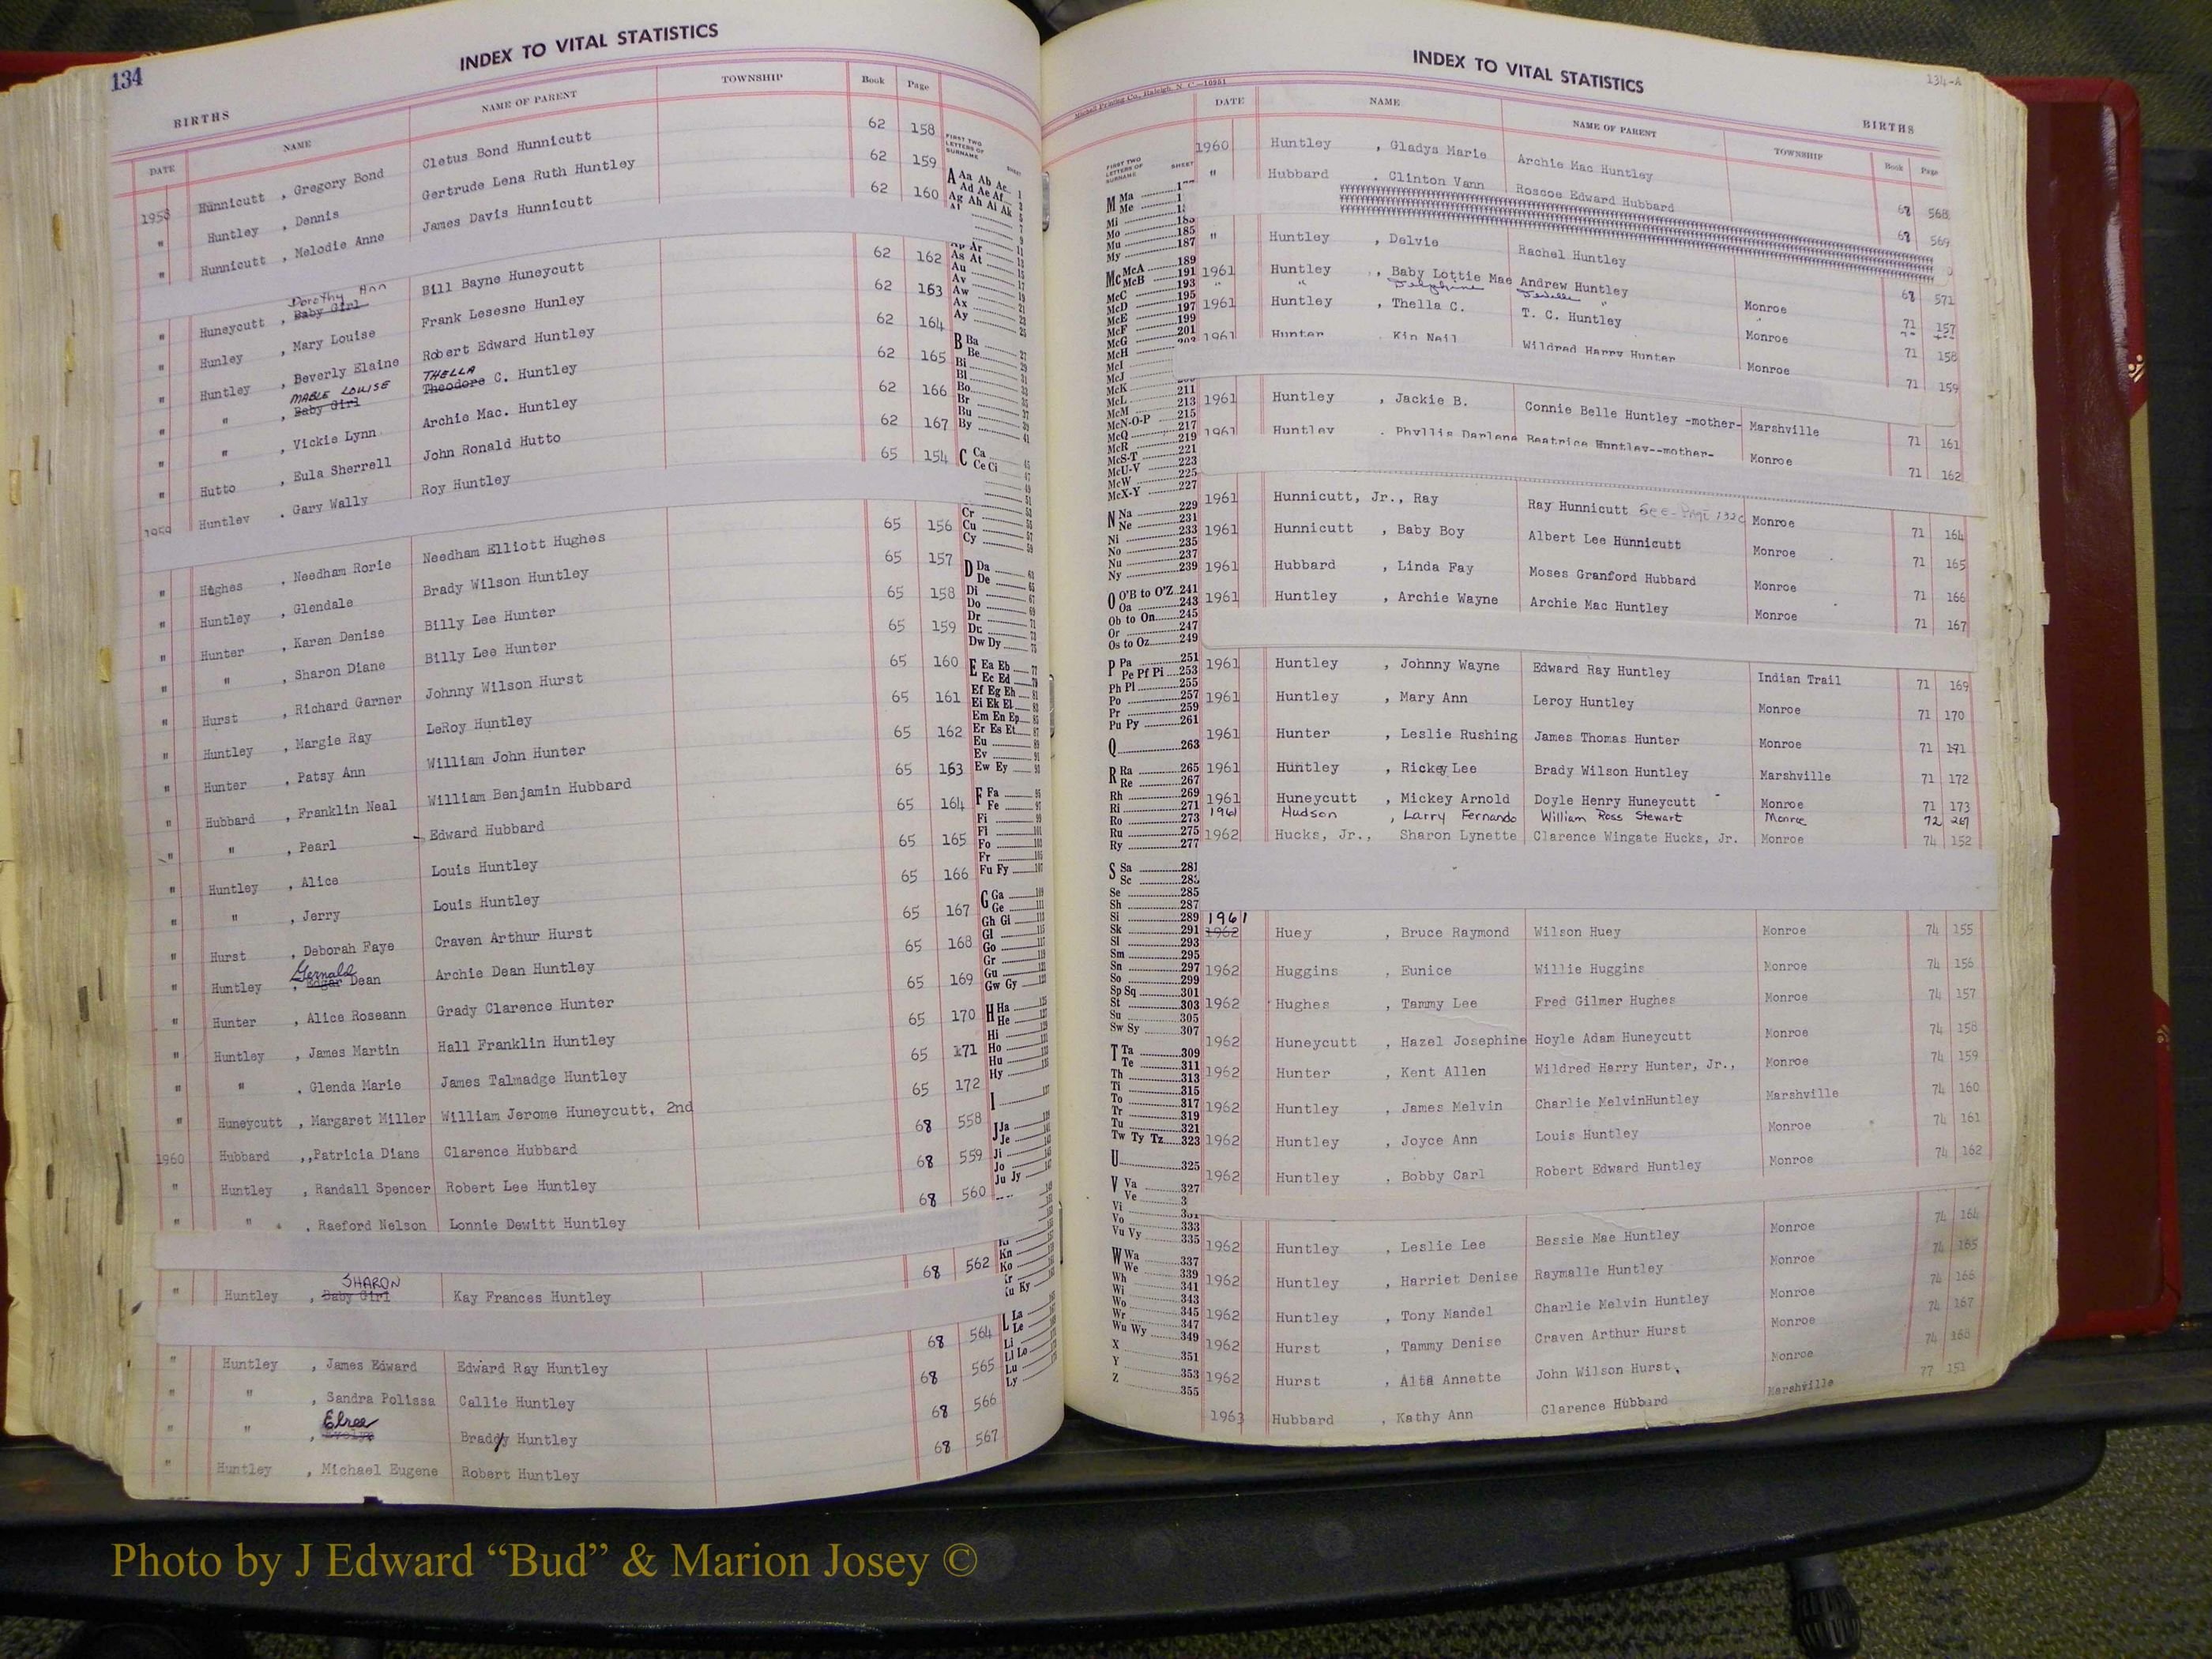 134
INDEX TO VITAL STATISTICS
BIRTHS
DATE NAME NAME OF PARENT TOWNSHIP Book Page
1958 Hunnicutt , Gregory Bond Cletus Bond Hunnicutt 62 158
" Huntley , Dennis Gertrude Lena Ruth Huntley 62 159
" Hunnicutt , Melodie Anne James Davis Hunnicutt 62 160
" Huneycutt , Dorothy Ann Baby Girl Bill Bayne Huneycutt 62 162
" Hunley , Mary Louise Frank Lesesne Hunley 62 163
" Huntley , Beverly Elaine Robert Edward Huntley 62 164
" " , MABLE LOUISE Baby Girl THELLA Theodore C. Huntley 62 165
" " , Vickie Lynn Archie Mac. Huntley 62 166
" Hutto , Eula Sherrell John Ronald Hutto 62 167
1959 Huntley , Gary Wally Roy Huntley 65 154
" Hughes , Needham Rorie Needham Elliott Hughes 65 156
" Huntley , Glendale Brady Wilson Huntley 65 157
" Hunter , Karen Denise Billy Lee Hunter 65 158
" " , Sharon Diane Billy Lee Hunter 65 159
" Hurst , Richard Garner Johnny Wilson Hurst 65 160
" Huntley , Margie Ray LeRoy Huntley 65 161
" Hunter , Patsy Ann William John Hunter 65 162
" Hubbard , Franklin Neal William Benjamin Hubbard 65 163
" " , Pearl Edward Hubbard 65 164
" Huntley , Alice Louis Huntley 65 165
" " , Jerry Louis Huntley 65 166
" Hurst , Deborah Faye Craven Arthur Hurst 65 167
" Huntley , Edgar Dean Archie Dean Huntley 65 168
" Hunter , Alice Roseann Grady Clarence Hunter 65 169
" Huntley , James Martin Hall Franklin Huntley 65 170
" " , Glenda Marie James Talmadge Huntley 65 171
" Huneycutt , Margaret Miller William Jerome Huneycutt, 2nd 65 172
1960 Hubbard ,,Patricia Diane Clarence Hubbard 68 558
" Huntley , Randall Spencer Robert Lee Huntley 68 559
" " , Raeford Nelson Lonnie Dewitt Huntley 68 560
" Huntley , SHARON Baby Girl Kay Frances Huntley 68 562
" Huntley , James Edward Edward Ray Huntley 68 564
" " , Sandra Polissa Callie Huntley 68 565
" " , Elree Evelyn Brady Huntley 68 566
" Huntley , Michael Eugene Robert Huntley 68 567
FIRST TWO LETTERS OF SURNAME SHEET
A Aa Ab Ac
Ad Ae Af
Ag Ah Ai Ak
As At
Au
Av
Aw
Ax
Ay
B Ba
Be
Bi
Bl
Bo
Br
Bu
By
C Ca
Ce Ci
Cr
Cu
Cy
D Da
De
Di
Do
Dr
Dw Dy
E Ea Eb
Ec Ed
Ef Eg Eh
Ei Ek El
Em En Ep
Er Es Et
Eu
Ev
Ew Ey
F Fa
Fe
Fi
Fl
Fo
Fr
Fu Fy
G Ga
Ge
Gh Gi
Gl
Go
Gr
Gu
Gw Gy
H Ha
He
Hi
Ho
Hu
Hy
I
J Ja
Je
Ji
Jo
Ju Jy
Kn
Ko
L La
Le
Li
Ll Lo
Lu
Ly
134-A
INDEX TO VITAL STATISTICS
Mitchell Printing Co., Raleigh, N. C.—10981
BIRTHS
DATE NAME NAME OF PARENT TOWNSHIP Book Page
1960 Huntley , Gladys Marie Archie Mac Huntley 68 568
" Hubbard . Clinton Vann Roscoe Edward Hubbard 68 569
" Huntley , Delvie Rachel Huntley 68 571
1961 Huntley , Baby Lottie Mae Andrew Huntley Monroe 71 157
1961 Huntley , Thella C. T. C. Huntley Monroe 71 158
1961 Hunter Kip Neil Wildred Harry Hunter Monroe 71 159
1961 Huntley , Jackie B. Connie Belle Huntley -mother- Marshville 71 161
1961 Huntley . Phyllis Darlene Beatrice Huntley--mother- Monroe 71 162
1961 Hunnicutt, Jr., Ray Ray Hunnicutt Monroe 71 164
1961 Hunnicutt , Baby Boy Albert Lee Hunnicutt Monroe 71 165
1961 Hubbard , Linda Fay Moses Granford Hubbard Monroe 71 166
1961 Huntley , Archie Wayne Archie Mac Huntley Monroe 71 167
1961 Huntley , Johnny Wayne Edward Ray Huntley Indian Trail 71 169
1961 Huntley , Mary Ann Leroy Huntley Monroe 71 170
1961 Hunter , Leslie Rushing James Thomas Hunter Monroe 71 171
1961 Huntley , Rickey Lee Brady Wilson Huntley Marshville 71 172
1961 Huneycutt , Mickey Arnold Doyle Henry Huneycutt Monroe 71 173
1961 Hudson , Larry Fernando William Ross Stewart Monroe 72 267
1962 Hucks, Jr., Sharon Lynette Clarence Wingate Hucks, Jr. Monroe 74 152
1961 1962 Huey , Bruce Raymond Wilson Huey Monroe 74 155
1962 Huggins , Eunice Willie Huggins Monroe 74 156
1962 Hughes , Tammy Lee Fred Gilmer Hughes Monroe 74 157
1962 Huneycutt , Hazel Josephine Hoyle Adam Huneycutt Monroe 74 158
1962 Hunter , Kent Allen Wildred Harry Hunter, Jr., Monroe 74 159
1962 Huntley , James Melvin Charlie MelvinHuntley Marshville 74 160
1962 Huntley , Joyce Ann Louis Huntley Monroe 74 161
1962 Huntley , Bobby Carl Robert Edward Huntley Monroe 74 162
1962 Huntley , Leslie Lee Bessie Mae Huntley Monroe 74 164
1962 Huntley , Harriet Denise Raymalle Huntley Monroe 74 165
1962 Huntley , Tony Mandel Charlie Melvin Huntley Monroe 74 166
1962 Hurst , Tammy Denise Craven Arthur Hurst Monroe 74 167
1962 Hurst , Alta Annette John Wilson Hurst, Monroe 74 168
1963 Hubbard , Kathy Ann Clarence Hubbard Marshville 77 151
FIRST TWO LETTERS OF SURNAME SHEET
M Ma
Me
Mi
Mo 185
Mu 187
My
Mc McA 189
McB 191
McC 193
McD 195
McE 197
McF 199
McG 201
McH
McI
McJ
McK 211
McL 213
McM 215
McN-O-P 217
McQ 219
McR 221
McS-T 223
McU-V 225
McW 227
McX-Y
N Na 229
Ne 231
Ni 233
No 235
Nu 237
Ny 239
O O'B to O'Z 241
Oa 243
Ob to On 245
Or 247
Os to Oz 249
P Pa 251
Pe Pf Pi 253
Ph Pl 255
Po 257
Pr 259
Pu Py 261
Q 263
R Ra 265
Re 267
Rh 269
Ri 271
Ro 273
Ru 275
Ry 277
S Sa 281
Sc
Se 285
Sh 287
Si 289
Sk 291
Sl 293
Sm 295
Sn 297
So 299
Sp Sq 301
St 303
Su 305
Sw Sy 307
T Ta 309
Te 311
Th 313
Ti 315
To 317
Tr 319
Tu 321
Tw Ty Tz 323
U 325
V Va 327
Ve
Vi
Vo 333
Vu Vy 335
W Wa 337
We 339
Wh 341
Wi 343
Wo 345
Wr 347
Wu Wy 349
X 351
Y 353
Z 355
Photo by J Edward “Bud” & Marion Josey ©